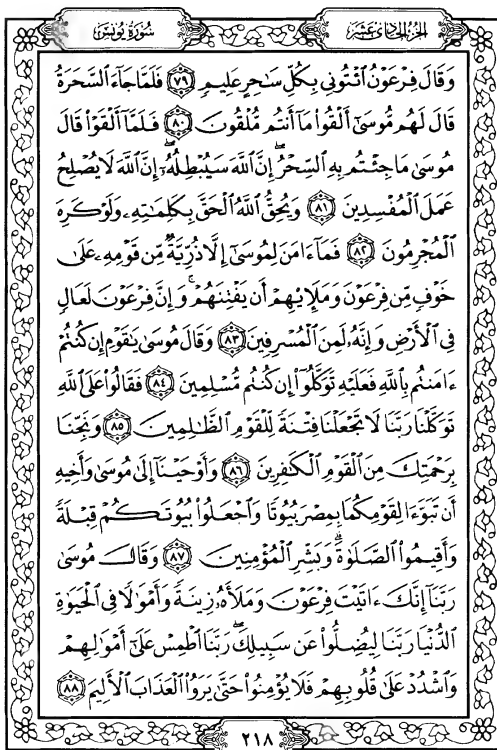 سُورَةُ يُونُسَ
الجُزءُ الحَادِى عَشَرَ
وَقَالَ فِرْعَوْنُ ٱئْتُونِى بِكُلِّ سَٰحِرٍ عَلِيمٍ ٧٩ فَلَمَّا جَآءَ ٱلسَّحَرَةُ
قَالَ لَهُم مُّوسَىٰٓ أَلْقُوا۟ مَآ أَنتُم مُّلْقُونَ ٨٠ فَلَمَّآ أَلْقَوْا۟ قَالَ
مُوسَىٰ مَا جِئْتُم بِهِ ٱلسِّحْرُ ۖ إِنَّ ٱللَّهَ سَيُبْطِلُهُۥٓ ۖ إِنَّ ٱللَّهَ لَا يُصْلِحُ
عَمَلَ ٱلْمُفْسِدِينَ ٨١ وَيُحِقُّ ٱللَّهُ ٱلْحَقَّ بِكَلِمَٰتِهِۦ وَلَوْ كَرِهَ
ٱلْمُجْرِمُونَ ٨٢ فَمَآ ءَامَنَ لِمُوسَىٰٓ إِلَّا ذُرِّيَّةٌ مِّن قَوْمِهِۦ عَلَىٰ
خَوْفٍ مِّن فِرْعَوْنَ وَمَلَإِي۟هِمْ أَن يَفْتِنَهُمْ ۚ وَإِنَّ فِرْعَوْنَ لَعَالٍ
فِى ٱلْأَرْضِ وَإِنَّهُۥ لَمِنَ ٱلْمُسْرِفِينَ ٨٣ وَقَالَ مُوسَىٰ يَٰقَوْمِ إِن كُنتُمْ
ءَامَنتُم بِٱللَّهِ فَعَلَيْهِ تَوَكَّلُوٓا۟ إِن كُنتُم مُّسْلِمِينَ ٨٤ فَقَالُوا۟ عَلَى ٱللَّهِ
تَوَكَّلْنَا رَبَّنَا لَا تَجْعَلْنَا فِتْنَةً لِّلْقَوْمِ ٱلظَّٰلِمِينَ ٨٥ وَنَجِّنَا
بِرَحْمَتِكَ مِنَ ٱلْقَوْمِ ٱلْكَٰفِرِينَ ٨٦ وَأَوْحَيْنَآ إِلَىٰ مُوسَىٰ وَأَخِيهِ
أَن تَبَوَّءَا لِقَوْمِكُمَا بِمِصْرَ بُيُوتًا وَٱجْعَلُوا۟ بُيُوتَكُمْ قِبْلَةً
وَأَقِيمُوا۟ ٱلصَّلَوٰةَ ۗ وَبَشِّرِ ٱلْمُؤْمِنِينَ ٨٧ وَقَالَ مُوسَىٰ
رَبَّنَآ إِنَّكَ ءَاتَيْتَ فِرْعَوْنَ وَمَلَأَهُۥ زِينَةً وَأَمْوَٰلًا فِى ٱلْحَيَوٰةِ
ٱلدُّنْيَا رَبَّنَا لِيُضِلُّوا۟ عَن سَبِيلِكَ ۖ رَبَّنَا ٱطْمِسْ عَلَىٰٓ أَمْوَٰلِهِمْ
وَٱشْدُدْ عَلَىٰ قُلُوبِهِمْ فَلَا يُؤْمِنُوا۟ حَتَّىٰ يَرَوُا۟ ٱلْعَذَابَ ٱلْأَلِيمَ ٨٨
٢١٨